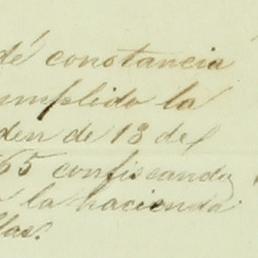 dé constancia
umplido la
den de 13 de
65 confiscando
la hacienda
llas.